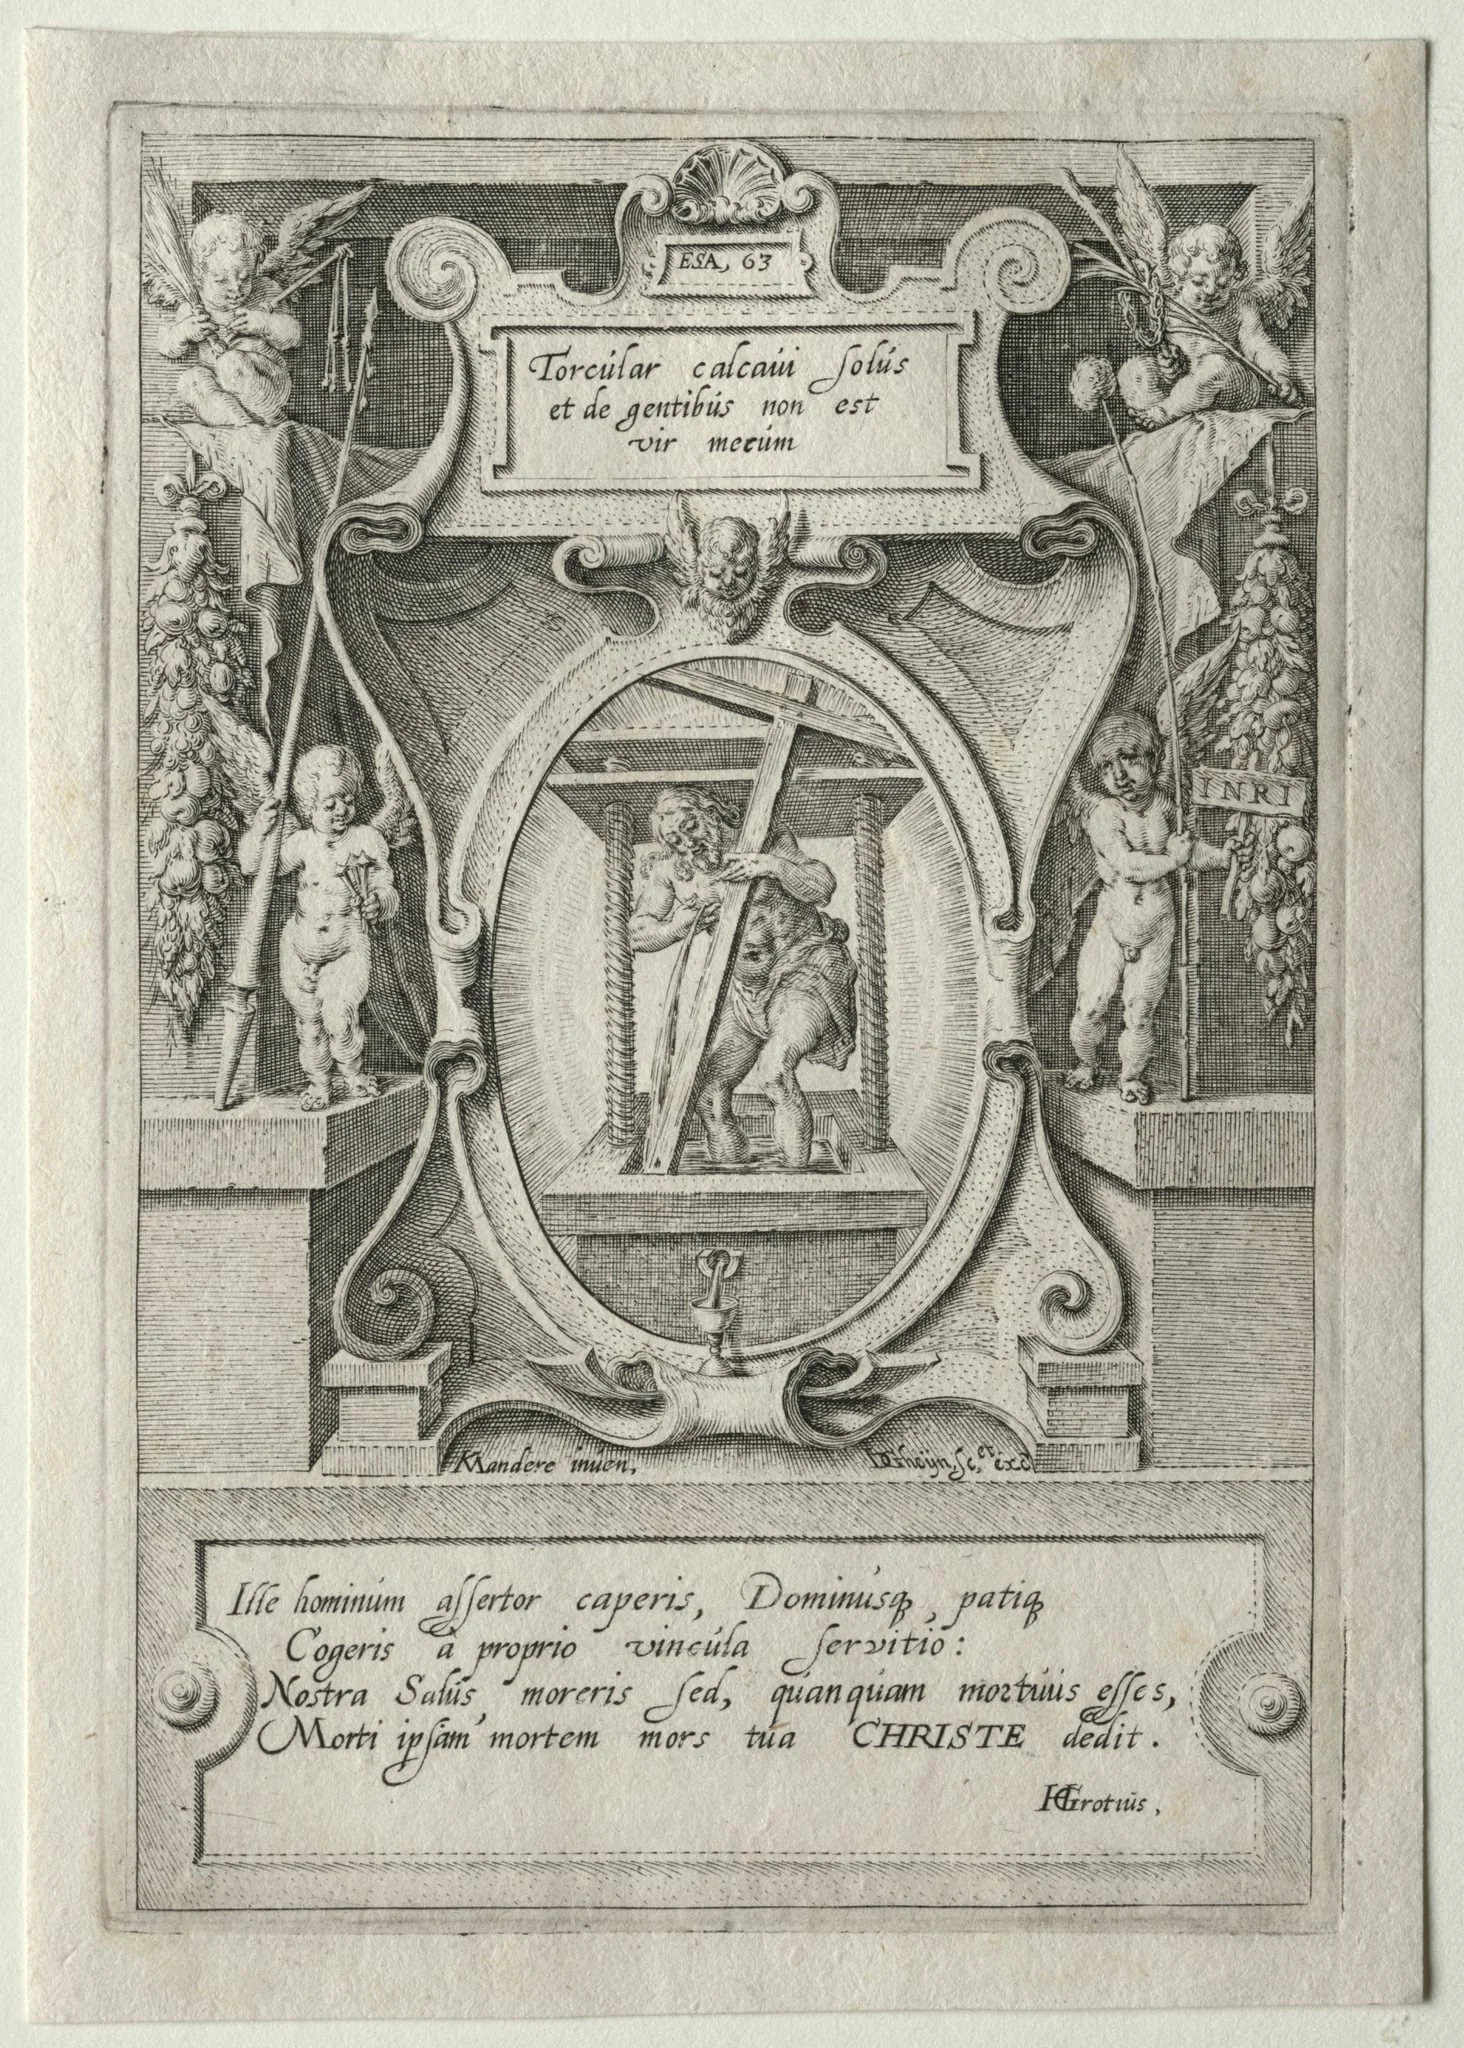 ESA, 63
Torcular calcaui solus
et de gentibus non est
vir mecum
INRI
KMandere inuen.
DGheijn. sc. et exc.
Ille hominum assertor caperis, Dominusq, patiq
Cogeris à proprio vincula servitio:
Nostra Salus moreris sed, quanquam mortuus esses,
Morti ipsam mortem mors tua CHRISTE dedit.
HGrotius,